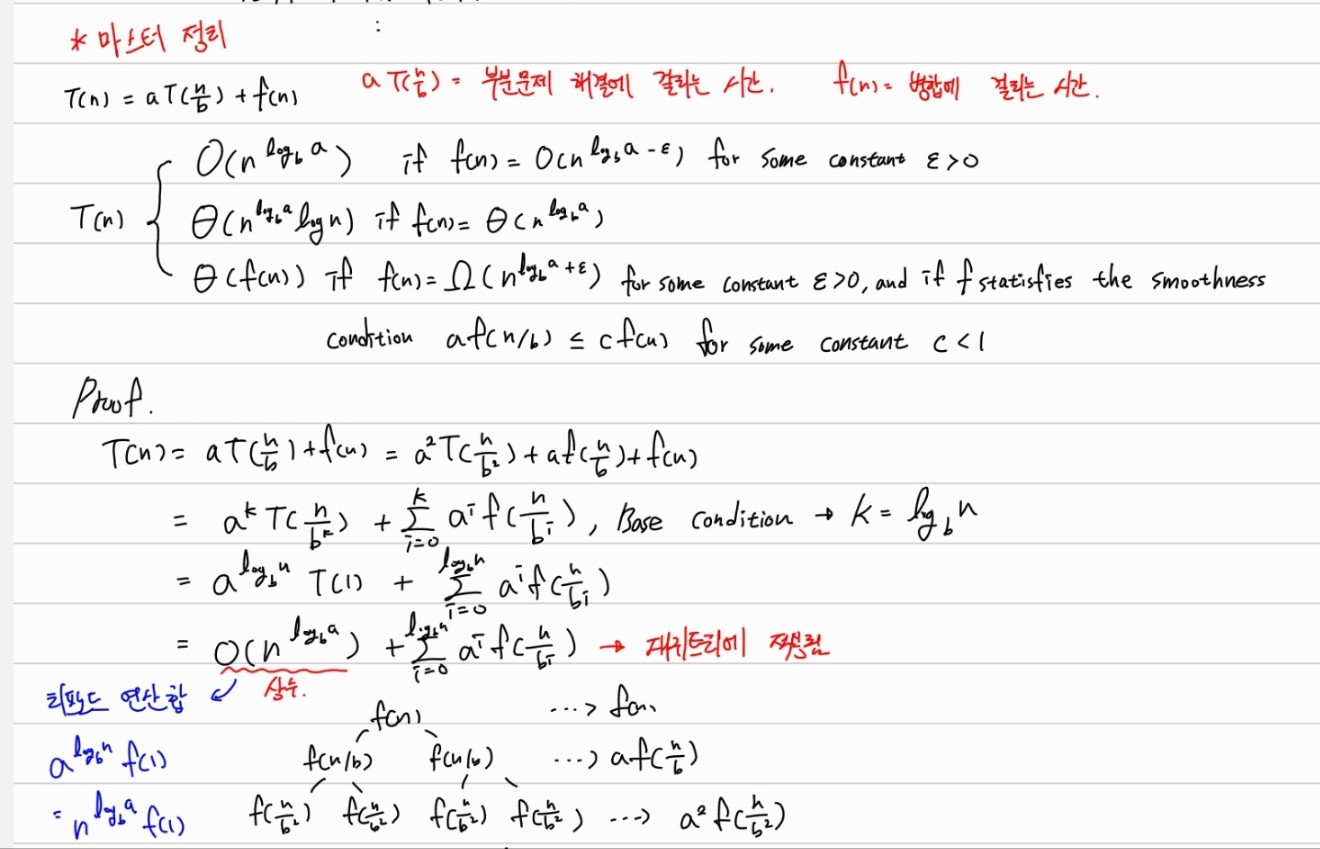 * 마스터 정리
T(n) = aT(n/b) + f(n) aT(n/b) = 부분문제 해결에 걸리는 시간. f(n) = 병합에 걸리는 시간.
O(n^{log_b a}) if f(n) = O(n^{log_b a - ε}) for some constant ε>0
T(n) { Θ(n^{log_b a} log n) if f(n) = Θ(n^{log_b a})
Θ(f(n)) if f(n) = Ω(n^{log_b a + ε}) for some constant ε>0, and if f statisfies the smoothness
condition af(n/b) ≤ cf(n) for some constant c<1
Proof.
T(n) = aT(n/b) + f(n) = a²T(n/b²) + af(n/b) + f(n)
= a^k T(n/b^k) + Σ_{i=0}^{k} a^i f(n/b^i), Base condition → k = log_b n
= a^{log_b n} T(1) + Σ_{i=0}^{log_b n} a^i f(n/b^i)
= O(n^{log_b a}) + Σ_{i=0}^{log_b n} a^i f(n/b^i) → 재귀트리에 적용됨
리프노드 연산합 ↙ 상수.
f(n) ...> f(n)
a^{log_b n} f(1) f(n/b) f(n/b) ...> af(n/b)
= n^{log_b a} f(1) f(n/b²) f(n/b²) f(n/b²) f(n/b²) ...> a² f(n/b²)